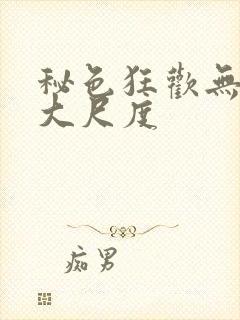 秘色狂歡無
大尺度
痴男